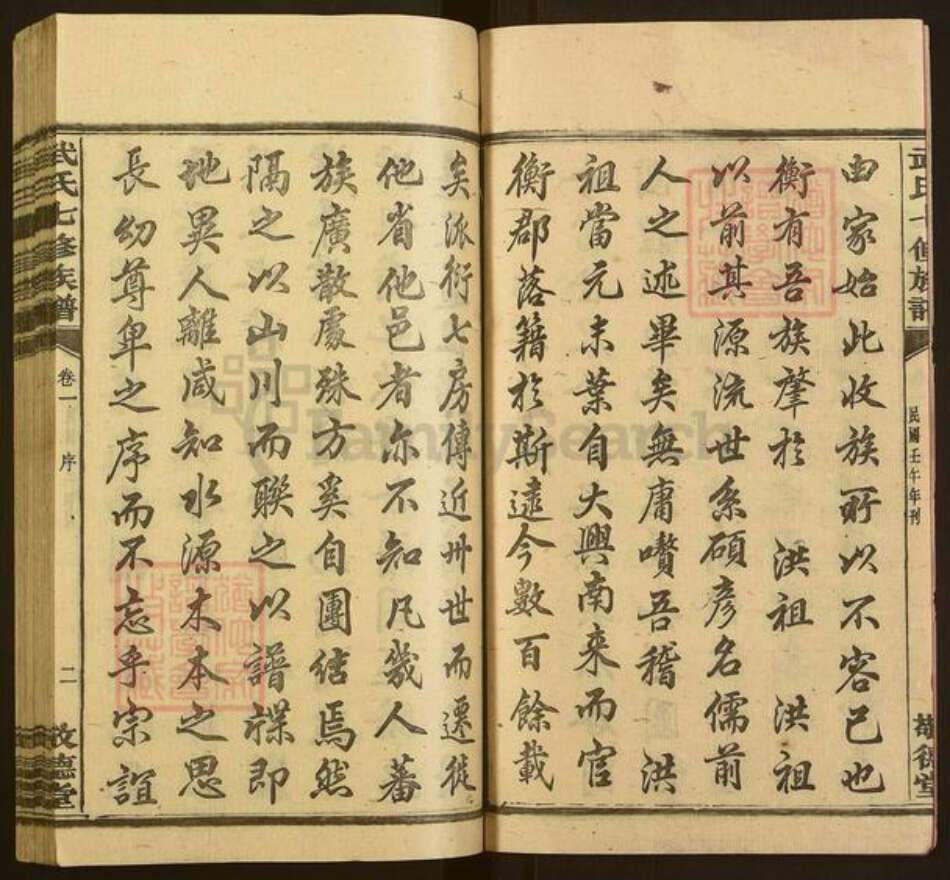 武氏七修族譜
民國壬午年刊
敬德堂
由家始此收族所以不容已也
衡有吾族肇於 洪祖 洪祖
以前其源流世系碩彥名儒前
人之述畢矣無庸嘖吾稽 洪
祖當元末葉自大興南來而官
衡郡落籍於斯遠今數百餘載
矣派衍七房傳近卅世而遷徙
他省他邑者尔不知凡幾人蕃
族廣散處殊方奚自團结焉然
隔之以山川而聯之以譜諜即
地異人離咸知水源木本之思
長幼尊卑之序而不忘乎宗誼
武氏七修族譜
卷一
序
二
敬德堂
FamilySearch